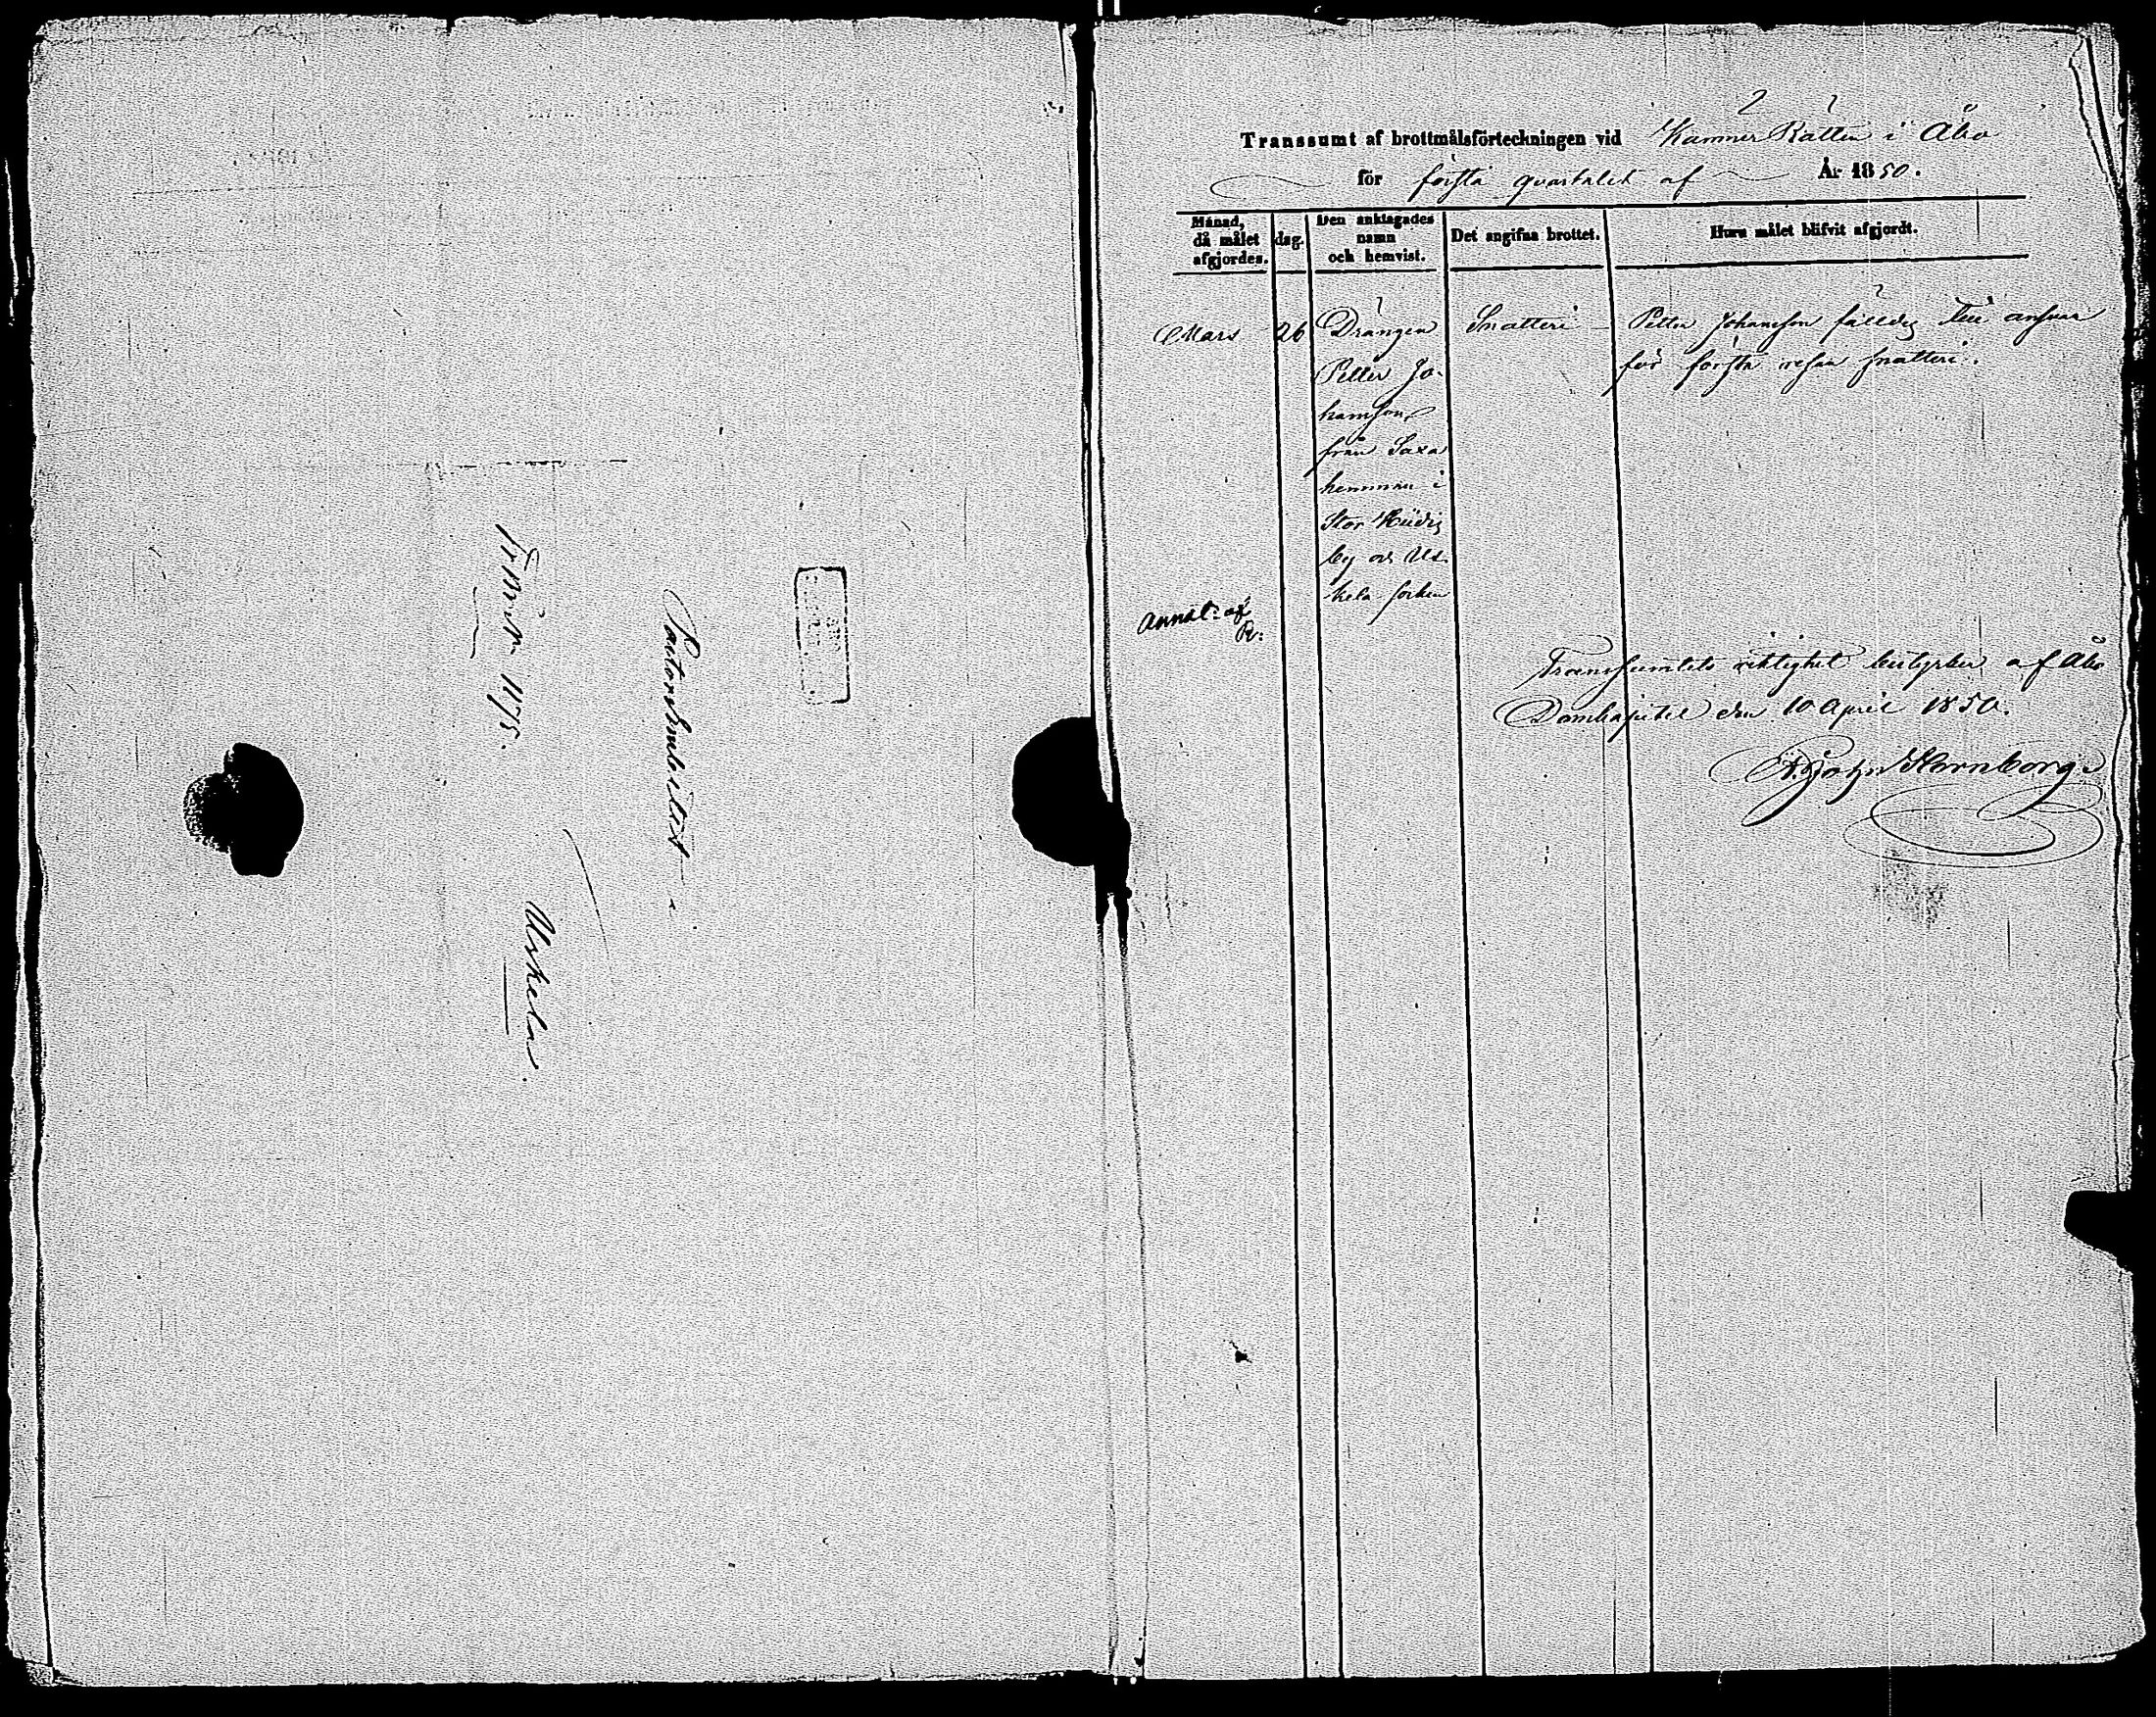 Pastorsembetet
i
Uskela
Transsumt af brottmålsförteckningen vid Kamner Rätten i Åbo
för första qvartalet af År 1850.
Månad, då målet afgjordes. dag. Den anklagades namn och hemvist. Det angifna brottet. Huru målet blifvit afgjordt.
Mars 26 Drängen Snatteri Petter Johansson fälldes till ansvar
Petter Jo- för första resan snatteri.
hansson
från Saxa
hemman i
Stor
by och Us-
kela socken
Annot: af
R:
Transsumtets riktighet bestyrker af Åbo
Domkapitel den 10 April 1850.
Hornborg